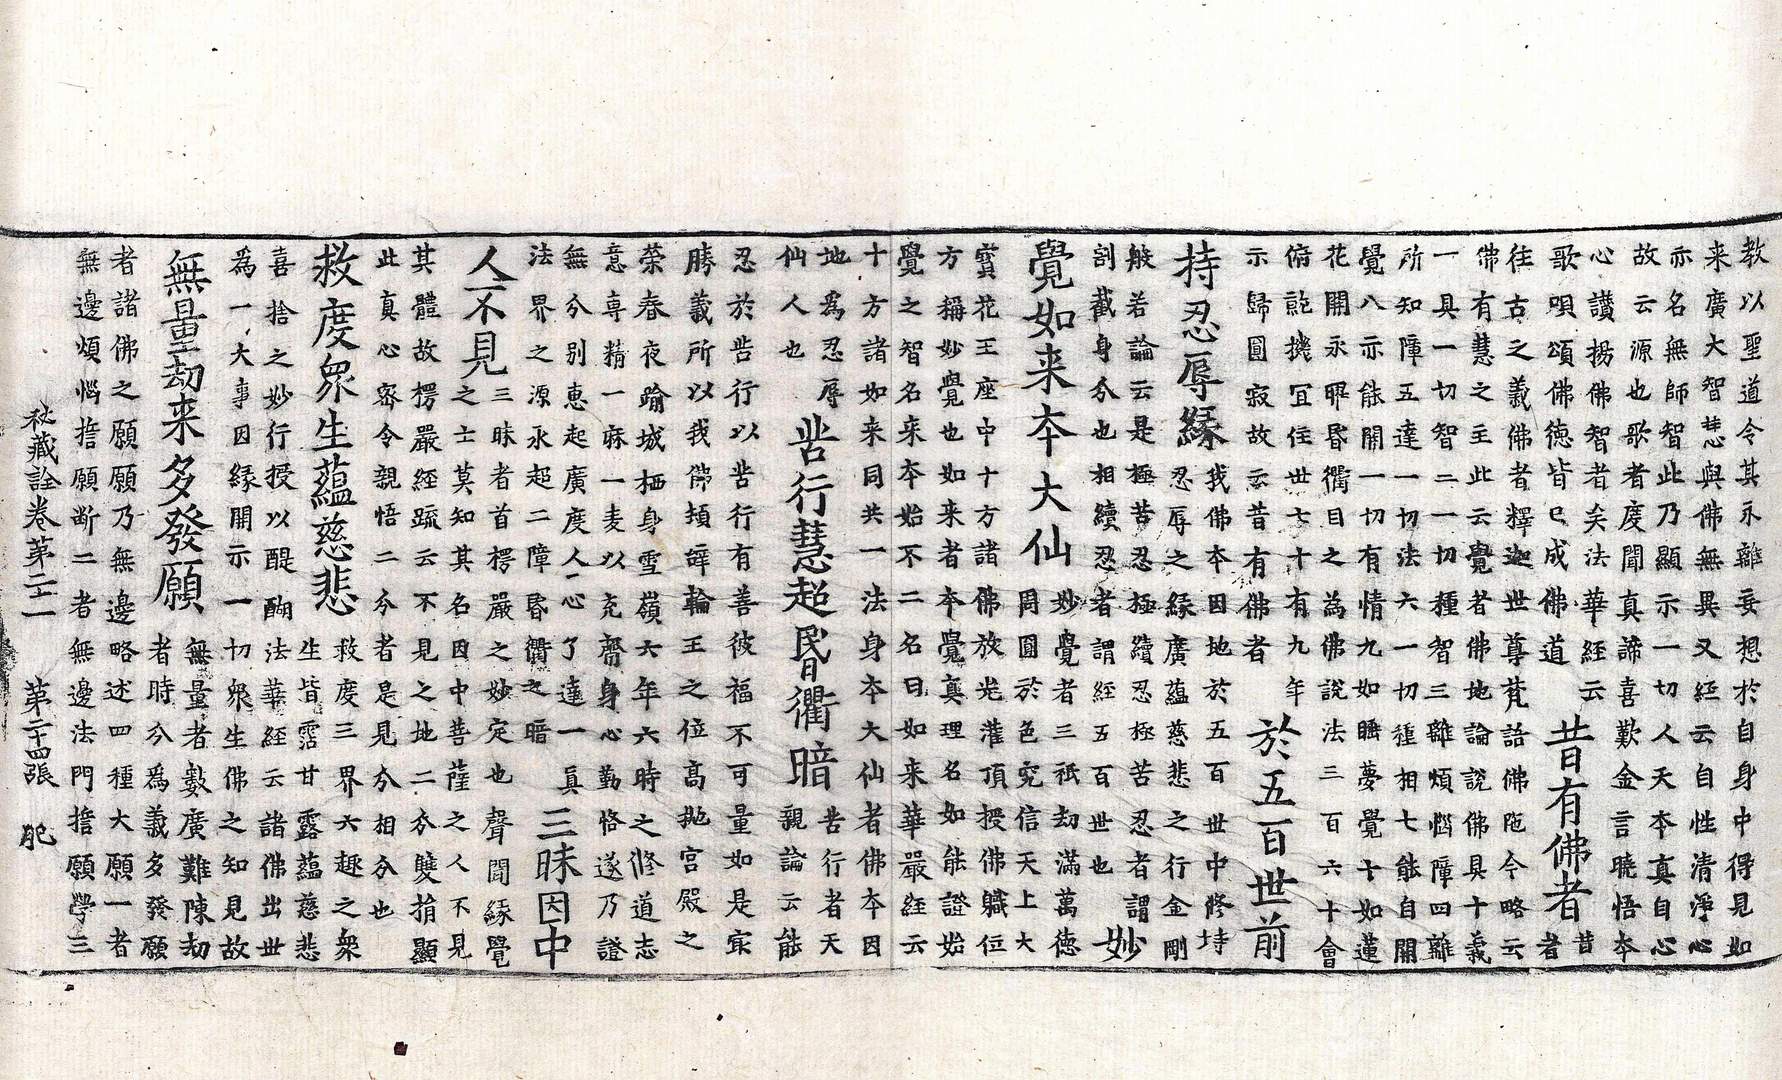 教以聖道令其永離妄想於自身中得見如
来廣大智慧與佛無異又經云自性清淨心
亦名無師智此乃顯示一切人天本真自心
故云源也歌者度聞真諦喜歎金言曉悟本
心讃揚佛智者矣法華經云 昔有佛者 昔
歌唄頌佛德皆已成佛道 者
往古之義佛者釋迦世尊梵語佛陁今略云
佛有慧之主此云覺者佛地論說佛具十義
一具一切智二一切種智三離煩惱障四離
所知障五達一切法六一切種相七能自開
覺八亦能開一切有情九如睡夢覺十如蓮
花開永曜昏衢目之為佛說法三百六十會
俯就機冝住世七十有九年 於五百世前
示歸圓寂故云昔有佛者
持忍辱緣 我佛本因地於五百世中修持
忍辱之緣廣蘊慈悲之行金剛
般若論云是極苦忍極續忍極苦忍者謂 妙
割截身分也相續忍者謂經五百世也
覺如来本大仙 妙覺者三祇劫滿萬德
周圓於色究信天上大
寶花王座中十方諸佛放光灌頂授佛職位
方稱妙覺也如来者本覺真理名如能證始
覺之智名来本始不二名曰如来華嚴經云
十方諸如来同共一法身本大仙者佛本因
地為忍辱 苦行慧超昏衢暗 苦行者天
仙人也 親論云能
忍於苦行以苦行有善彼福不可量如是㝡
勝義所以我佛頓辭輪王之位高抛宮殿之
榮春夜踰城栖身雪嶺六年六時之修道志
意専精一麻一麦以充齋身心勤恪遂乃證
無分別惠起廣度人心了達一真 三昧因中
法界之源永超二障昏衢之暗
人不見 三昧者首楞嚴之妙定也聲聞緣覺
之士莫知其名因中菩薩之人不見
其體故楞嚴經䟽云不見之地二分雙捐顯
此真心密令親悟二分者是見分相分也
救度眾生蘊慈悲 救度三界六趣之眾
生皆霑甘露蘊慈悲
喜捨之妙行授以醍醐法華經云諸佛出世
為一大事因緣開示一切眾生佛之知見故
無量劫来多發願 無量者數廣難陳劫
者時分為義多發願
者諸佛之願願乃無邊略述四種大願一者
無邊煩惱誓願断二者無邊法門誓願學三
秘藏詮卷第二十一 第二十四張 肥